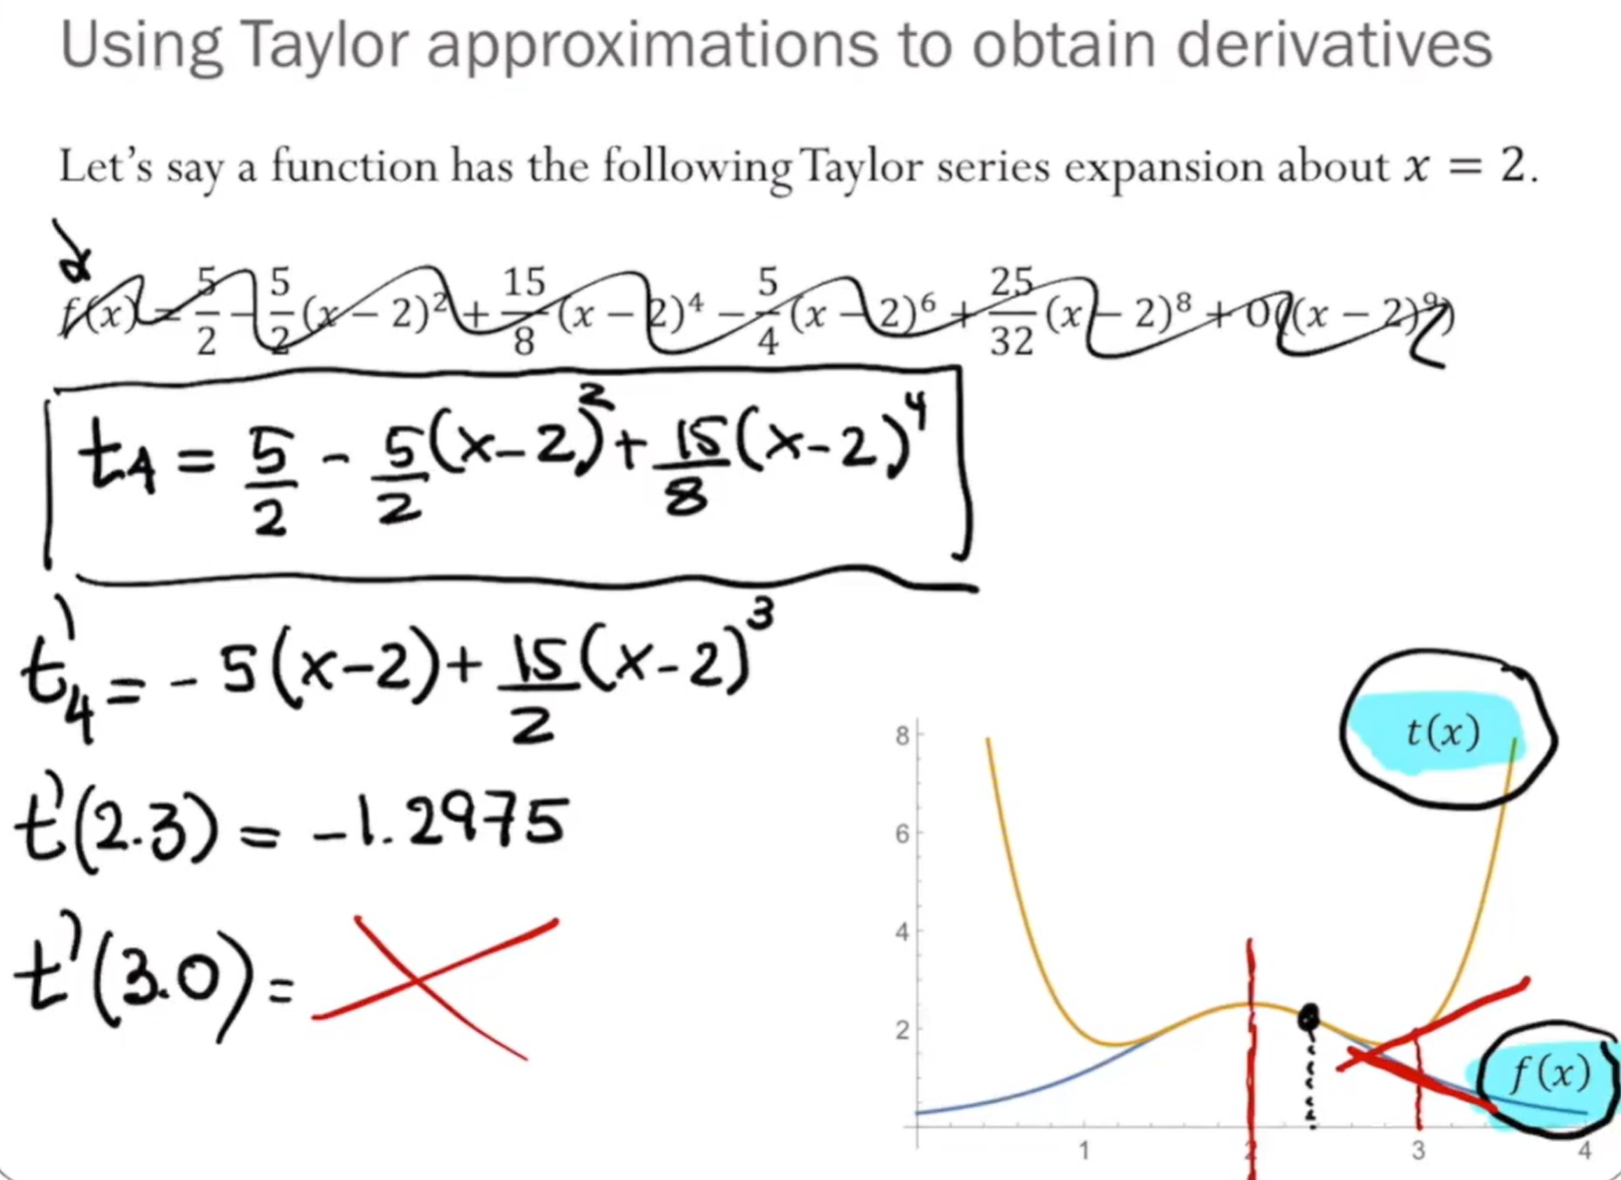 Using Taylor approximations to obtain derivatives
Let's say a function has the following Taylor series expansion about x = 2.
f(x) = 5/2 − 5/2 (x − 2)² + 15/8 (x − 2)⁴ − 5/4 (x − 2)⁶ + 25/32 (x − 2)⁸ + O((x − 2)⁹)
t₄ = 5/2 - 5/2 (x-2)² + 15/8 (x-2)⁴
t'₄ = - 5(x-2) + 15/2 (x-2)³
t'(2.3) = -1.2975
t'(3.0) =
t(x)
f(x)
8
6
4
2
1 2 3 4